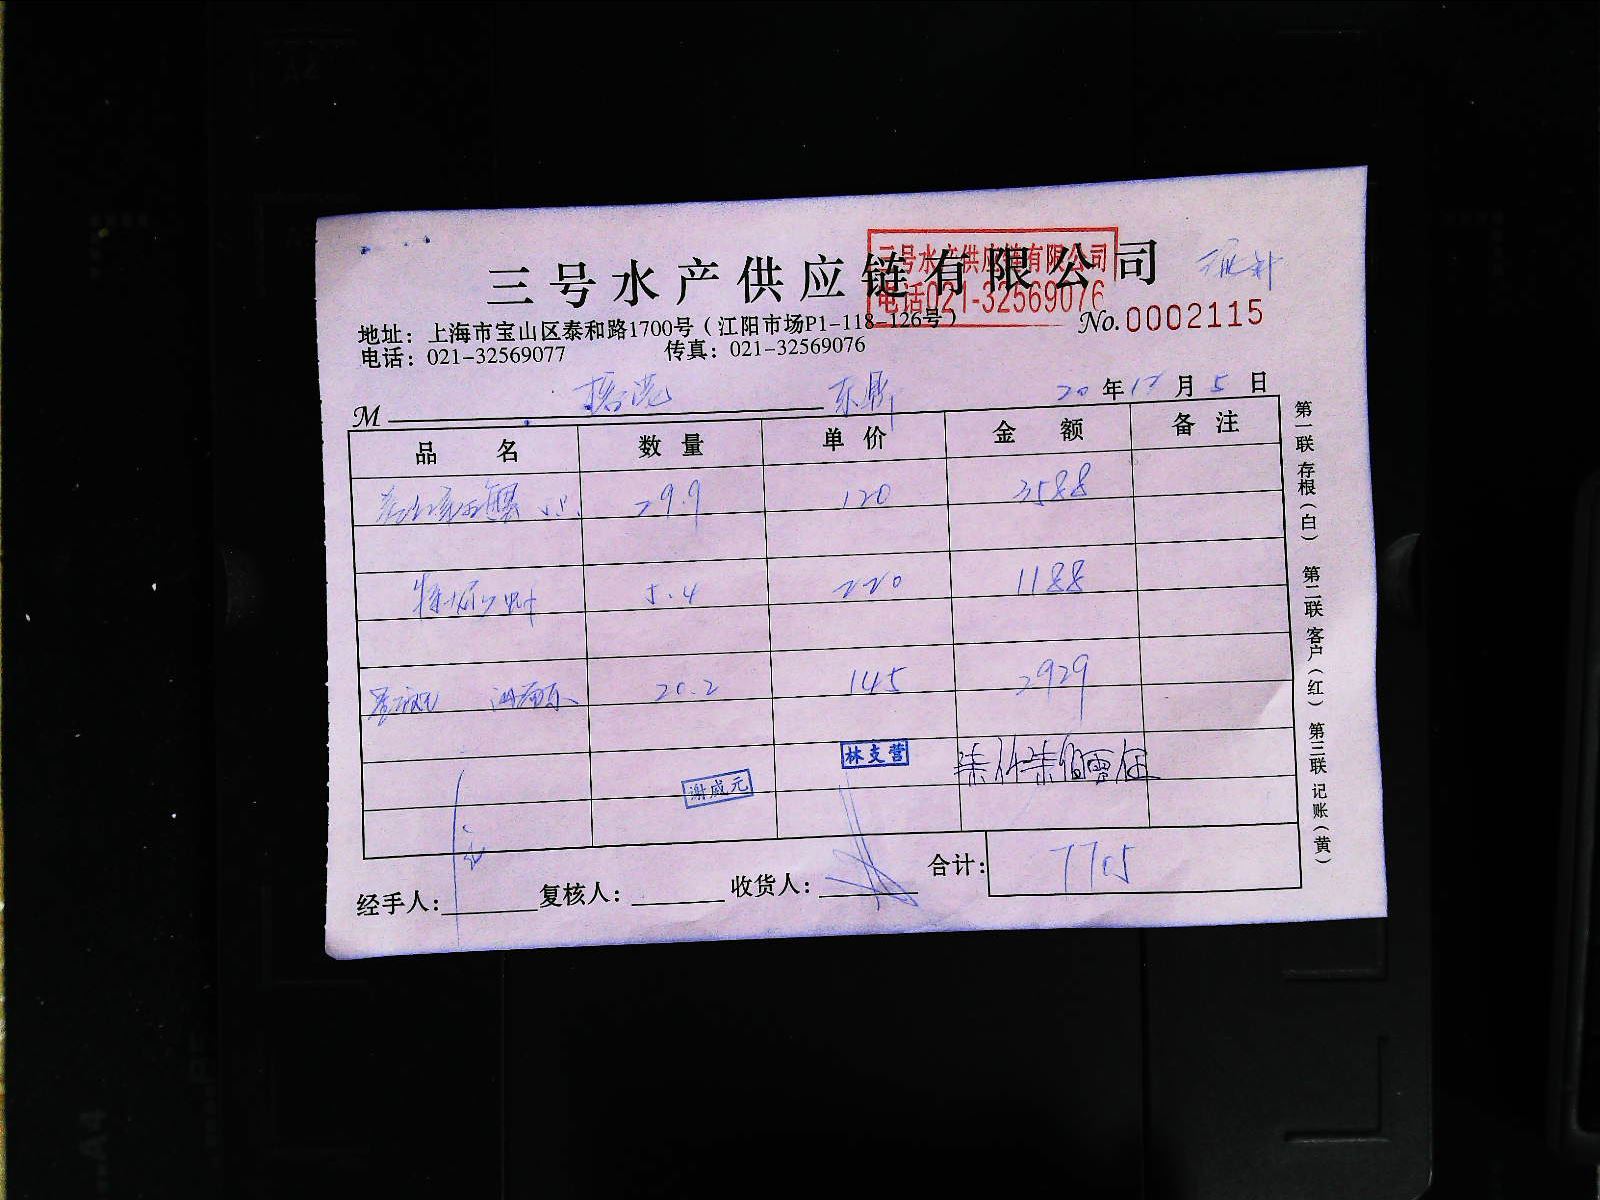 三号水产供应链有限公司
三号水产供应链有限公司
电话021-32569076
地址：上海市宝山区泰和路1700号（江阳市场P1-118-126号）
No.0002115
电话：021-32569077 传真：021-32569076
M 东鼎 20年12月5日
品名 数量 单价 金额 备注
29.9 120 3588
5.4 220 1188
20.2 145 2929
林支营
谢威元
柒仟柒佰零伍
合计：7705
经手人： 复核人： 收货人：
第一联 存根（白） 第二联 客户（红） 第三联 记账（黄）